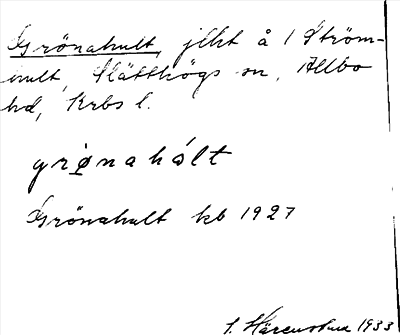 Grönahult, jlht å 1 Ström-
hult, Slätthögs sn, Allbo
hd, Krbs l.
grønahólt
Grönahult kb 1927
1933